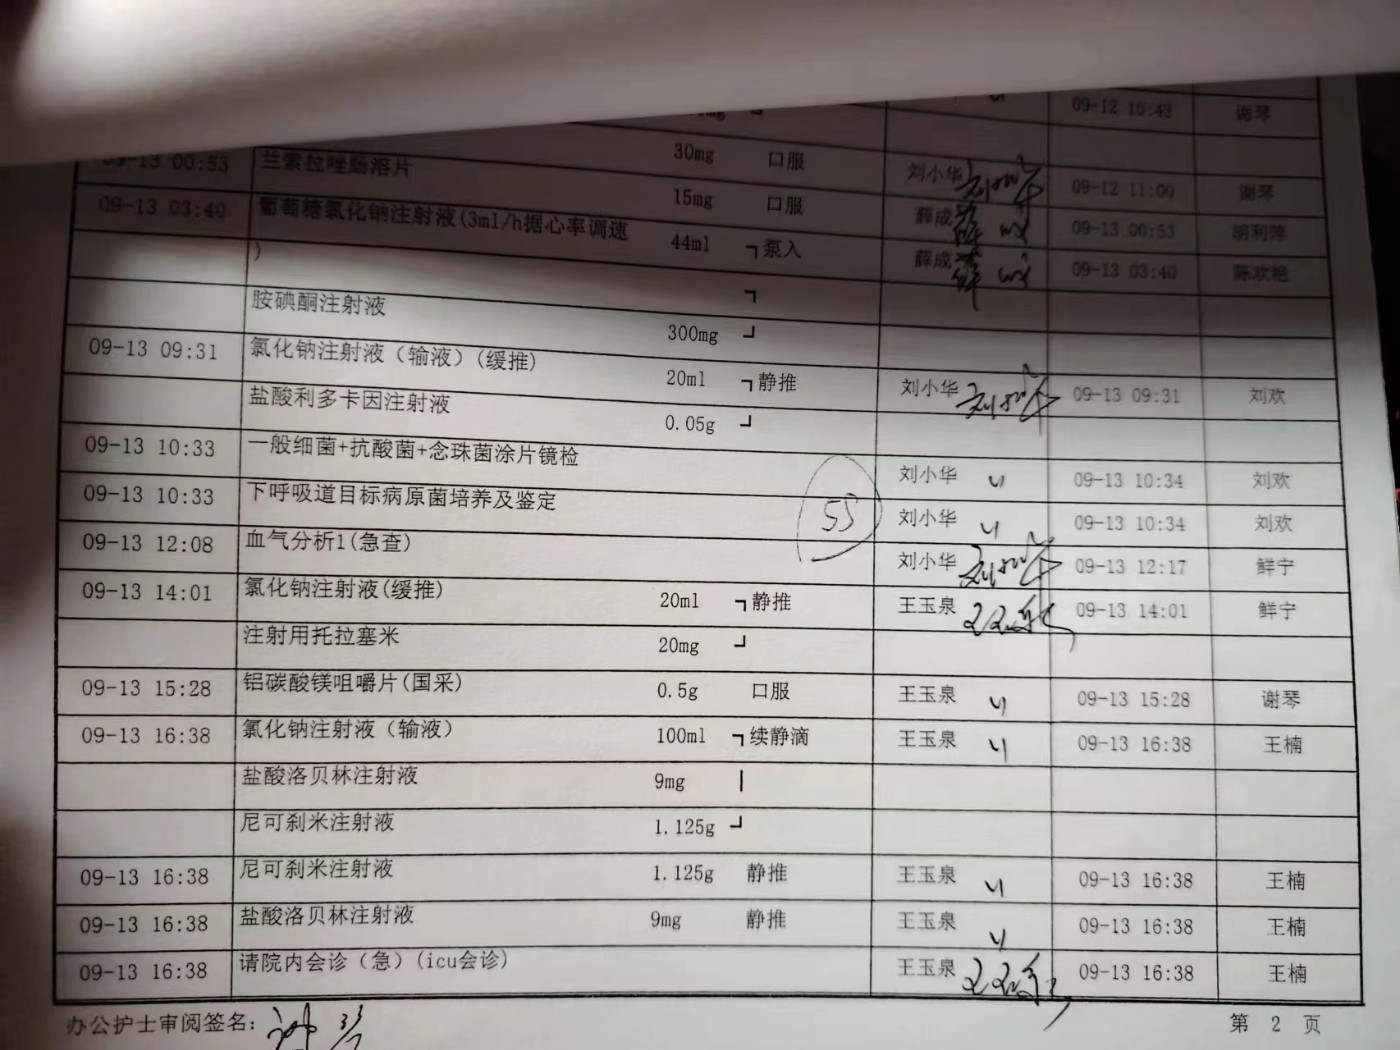 09-12 10:43 谢琴
30mg 口服 刘小华 09-12 11:00 谢琴
09-13 00:53 兰索拉唑肠溶片 15mg 口服 薛成 09-13 00:53 胡利萍
09-13 03:40 葡萄糖氯化钠注射液(3ml/h据心率调速 44ml ┐泵入 薛成 09-13 03:40 陈欢艳
) ┐
胺碘酮注射液 300mg ┘
09-13 09:31 氯化钠注射液（输液）(缓推) 20ml ┐静推 刘小华 09-13 09:31 刘欢
盐酸利多卡因注射液 0.05g ┘
09-13 10:33 一般细菌+抗酸菌+念珠菌涂片镜检 刘小华 09-13 10:34 刘欢
09-13 10:33 下呼吸道目标病原菌培养及鉴定 刘小华 09-13 10:34 刘欢
09-13 12:08 血气分析1(急查) 刘小华 09-13 12:17 鲜宁
09-13 14:01 氯化钠注射液(缓推) 20ml ┐静推 王玉泉 09-13 14:01 鲜宁
注射用托拉塞米 20mg ┘
09-13 15:28 铝碳酸镁咀嚼片(国采) 0.5g 口服 王玉泉 09-13 15:28 谢琴
09-13 16:38 氯化钠注射液（输液） 100ml ┐续静滴 王玉泉 09-13 16:38 王楠
盐酸洛贝林注射液 9mg |
尼可刹米注射液 1.125g ┘
09-13 16:38 尼可刹米注射液 1.125g 静推 王玉泉 09-13 16:38 王楠
09-13 16:38 盐酸洛贝林注射液 9mg 静推 王玉泉 09-13 16:38 王楠
09-13 16:38 请院内会诊（急）(icu会诊) 王玉泉 09-13 16:38 王楠
办公护士审阅签名： 第 2 页